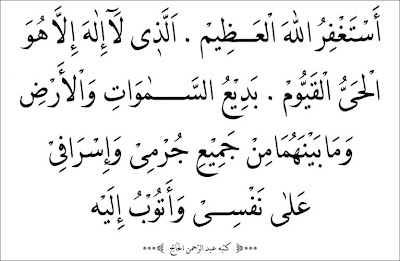 أَسْتَغْفِرُ اللهَ الْعَظِيْمَ . اَلَّذِى لَآ إِلٰهَ إِلَّا هُوَ
الْحَىُّ الْقَيُّوْمُ . بَدِيْعُ السَّمٰوَاتِ وَالْأَرْضِ
وَمَا بَيْنَهُمَا مِنْ جَمِيْعِ جُرْمِىْ وَإِسْرَافِىْ
عَلٰى نَفْسِىْ وَأَتُوْبُ إِلَيْه
كتبه عبد الرحمن الحاج